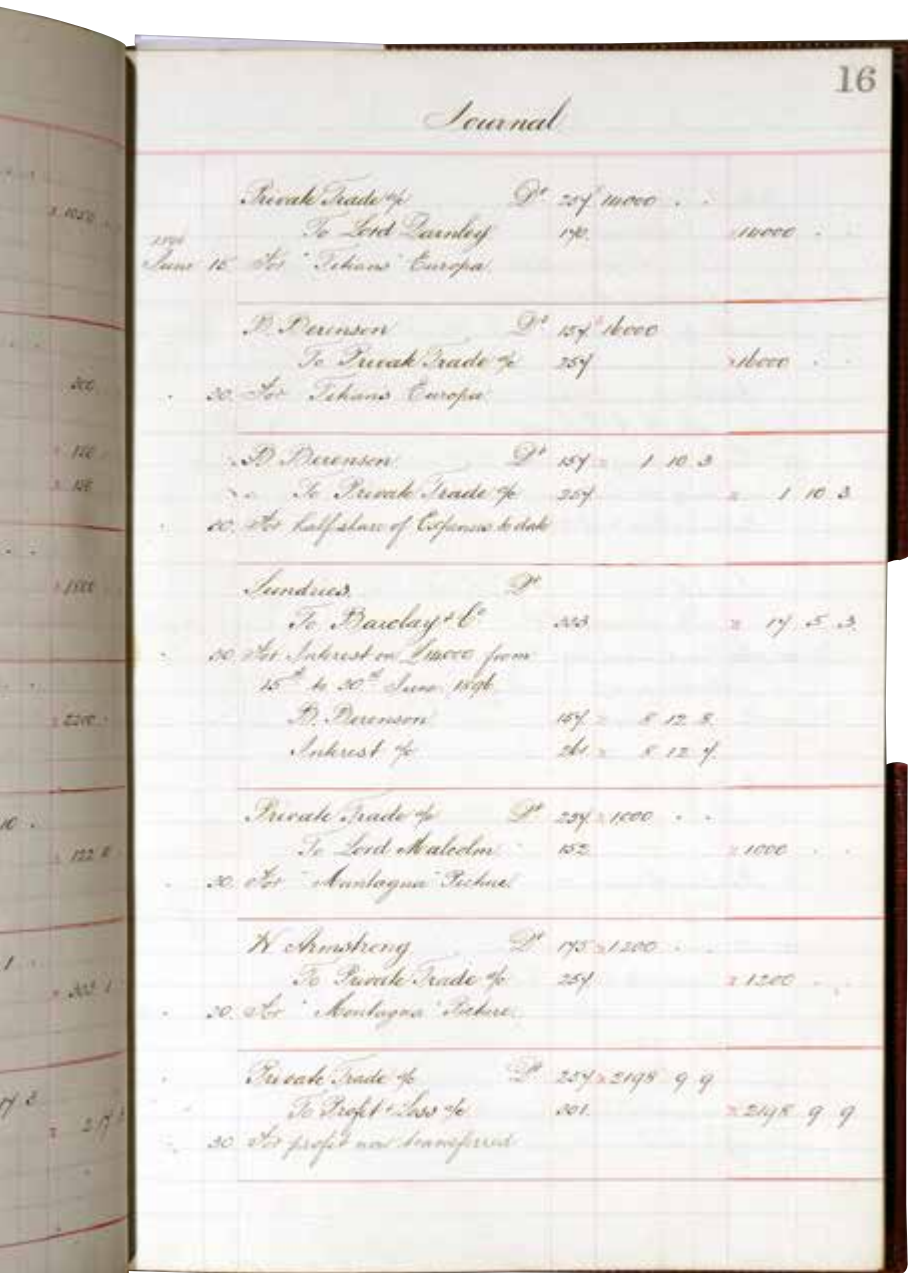 16
Journal
Private Trade a/c Dr 257 14000 . .
To Lord Darnley 170. 14000 . .
1896
June 15 For "Titians" Europa.
B. Berenson Dr 157 16000
To Private Trade a/c 257 16000 . .
" 30 For Titians Europa.
B. Berenson Dr 157 " 1 10 3
To Private Trade a/c 257 " 1 10 3
30 For half share of Expenses to date
Sundries. Dr
To Barclay & Co 333 " 17 5 3
30 For Interest on £14000 from
15th to 30th June 1896.
B. Berenson 157 " 8 12 8.
Interest a/c 261 " 8 12 7.
Private Trade a/c Dr 257 " 1000 . .
To Lord Malcolm 152 " 1000 . .
30 For "Mantagna" Picture.
W Armstrong Dr 175 " 1200 . .
To Private Trade a/c 257 " 1200 . .
30 For "Mantagna" Picture.
Private Trade a/c Dr 257 " 2198 9 9
To Profit & Loss a/c 301. " 2198 9 9
30 For profit now transferred
1050
300
120
150
1500
2200
10 .
122 8
1 . .
303 1
17 3
217 3